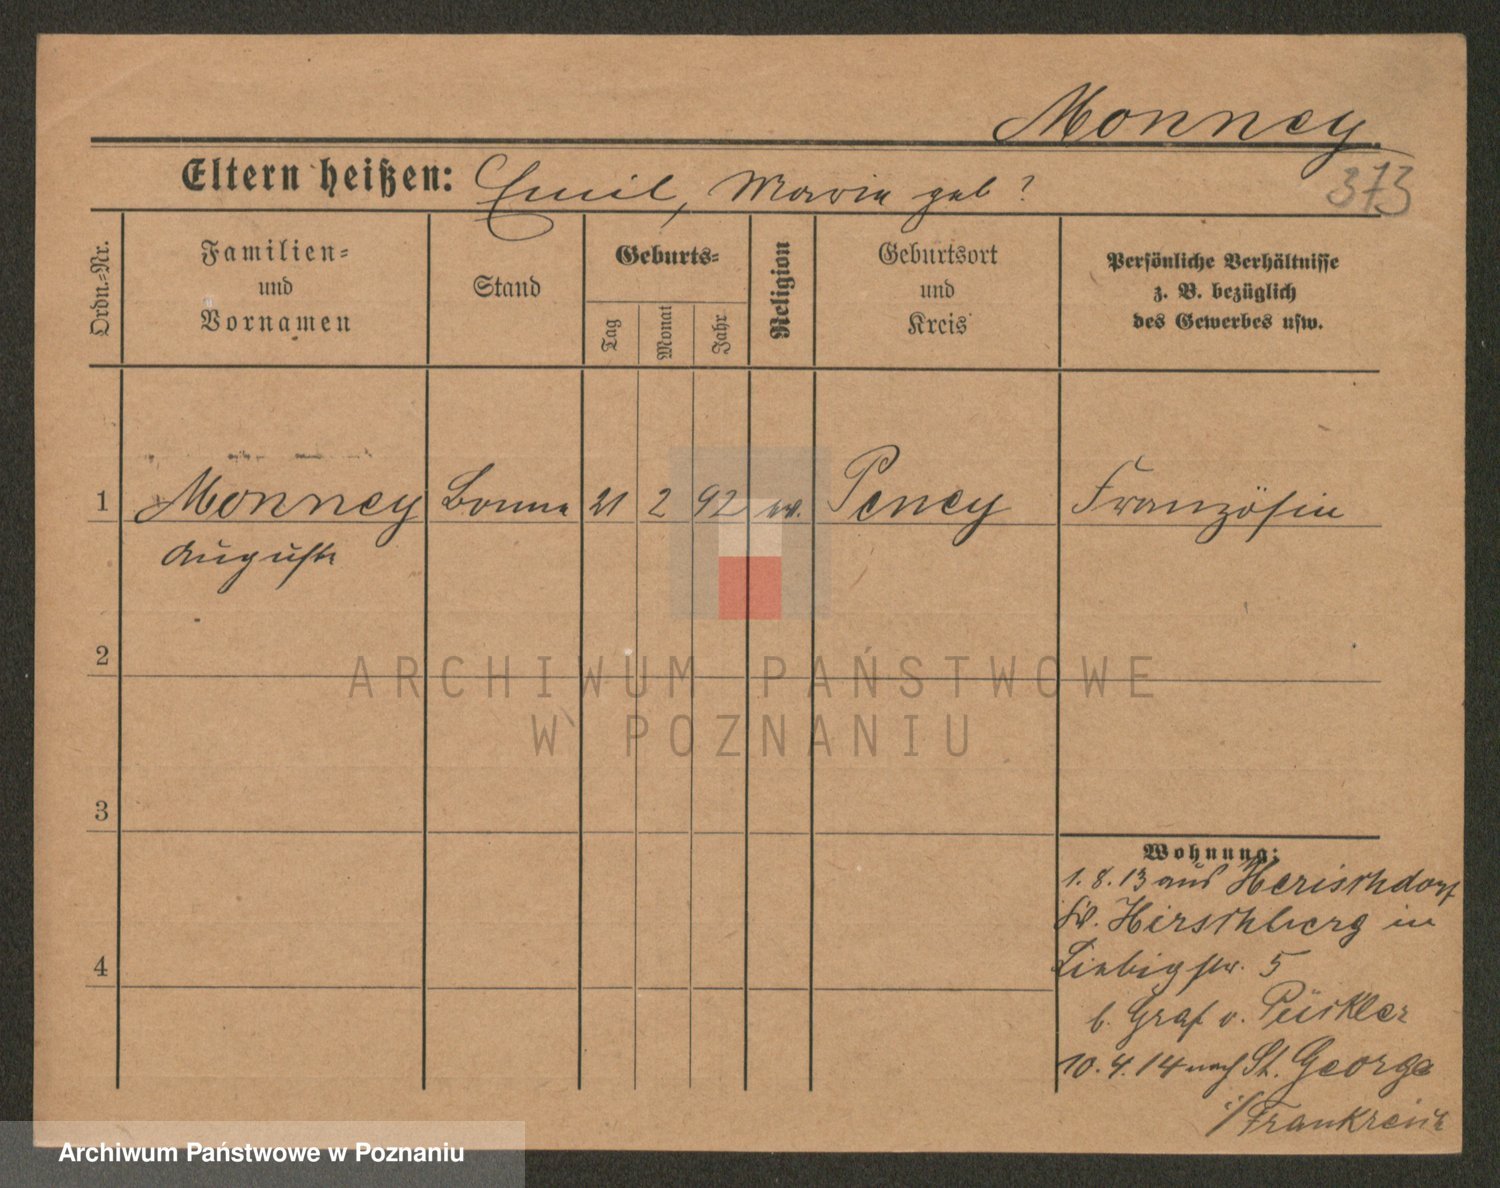 Monney.
373
Eltern heißen: Emil, Marie geb?
Ordn.-Nr.
Familien-
und
Vornamen
Stand
Geburts-
Tag
Monat
Jahr
Religion
Geburtsort
und
Kreis
Persönliche Verhältnisse
z. B. bezüglich
des Gewerbes usw.
1 Monney Bonne 21 2 92 ev. Peney Französin
Auguste
2
3
4
Wohnung:
1.8.13 aus Herischdorf
Kr. Hirschberg in
Liebigstr. 5
b. Graf v. Pückler
10.4.14 nach St. George
i/Frankreich
ARCHIWUM PAŃSTWOWE
W POZNANIU
Archiwum Państwowe w Poznaniu